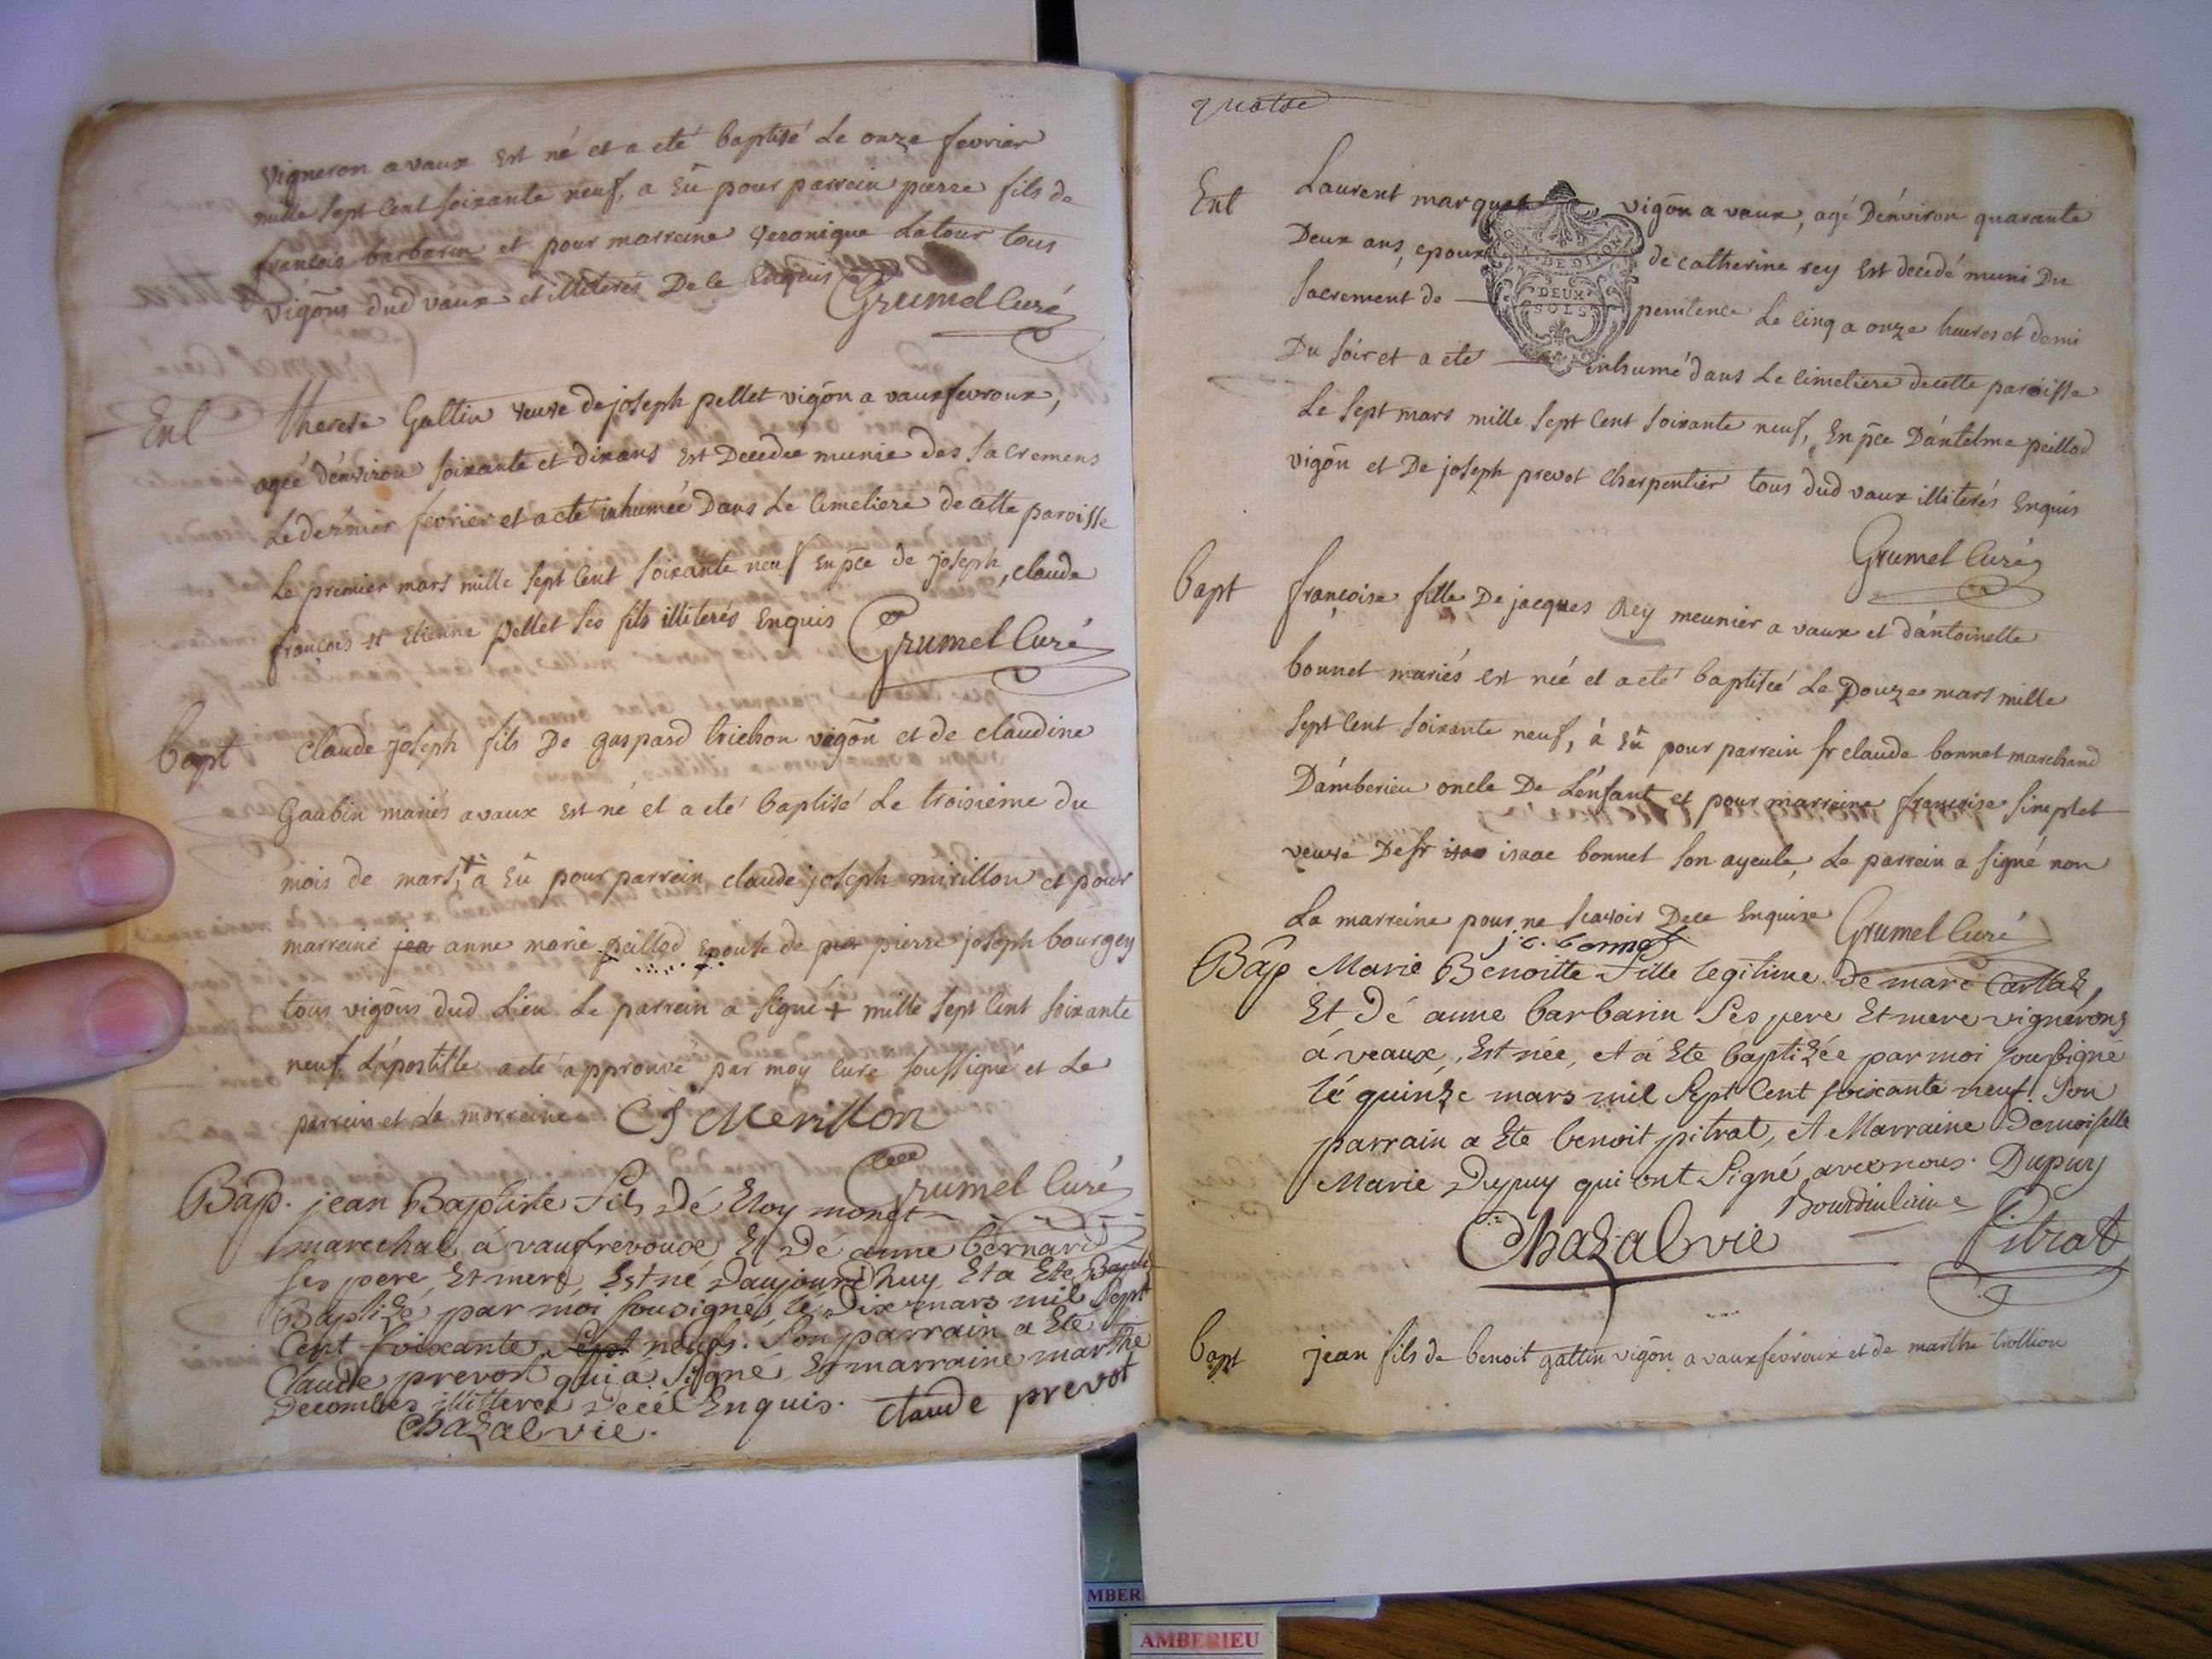 vigneron a vaux est né et a eté baptisé Le onze fevrier
mille sept cent soixante neuf, a Eû pour parrein pierre fils de
francois barbarin et pour marreine veronique Latour tous
vigõns dud vaux et illiterés De ce Enquis Grumel Curé
Ent therese Gattin veuve de joseph pellet vigõn a vauxfevroux,
agée d'environ soixante et dix ans est Decedée munie des sacremens
Le dernier fevrier et a eté inhumée Dans Le Cimetiere de cette paroisse
Le premier mars mille sept cent soixante neuf En pce de joseph, claude
francois et Etienne pellet ses fils illiterés Enquis Grumel Curé
bapt claude joseph fils De gaspard trichon vigõn et de claudine
Gaubin mariés a vaux est né et a eté baptisé Le troisième du
mois de mars,+ a Eû pour parrein claude joseph mirillon et pour
marreine jea anne marie peillod Epouse de pier pierre joseph bourgey
tous vigõns dud Lieu Le parrein a signé + mille sept cent soixante
neuf L'apostille a eté approuvé par moy curé soussigné et Le
parrein et La marreine CJ Merillon
Grumel Curé
Bap. jean Baptiste Fils Dé Eloy monet
marechal á vaufrevoux Et Dé anne bernard
ses pere Et mere, Est né Daujourd'huy Et a Ete Bapti
Baptizé par moi sousigné, le Dix mars mil Sept
Cent soixante Sept neufs. Son parrain a Eté
Claude prevot qui á Signé, Et marraine marthe
Decombes illitteres Decé Enquis. claude prevot
Chazalvie.
quatre
Ent Laurent marquet vigõn a vaux, agé D'environ quarante
Deux ans, epoux de catherine rey Est decedé muni Du
G. DE DIJON
DEUX
SOLS
sacrement de penitence Le cinq a onze heures et demi
Du soir et a eté inhumé dans Le cimetiere decette paroisse
Le sept mars mille sept cent soixante neuf, En pce D'antelme peillod
vigõn et De joseph prevot charpentier tous dud vaux illiterés Enquis
Grumel Curé
bapt françoise fille De jacques Rey meunier a vaux et d'antoinette
bonnet mariés est née et a eté baptisée Le Douze mars mille
sept cent soixante neuf, à Eû pour parrein sr claude bonnet marchand
D'amberieu oncle De L'enfant et pour marreine françoise simplet
veuve De sr isaac isaac bonnet son ayeule, Le parrein a signé non
La marreine pour ne scavoir Dece Enquise Grumel Curé
j. c. bonnet
Bap Marie Benoitte Fille legitime de marc Cartaz,
Et dé anne barbarin Ses pere Et mere vignerons
á veaux, Est née, et á Ete baptizée par moi sousigné
lé quinze mars mil Sept Cent soixante neuf. Son
parrain a Ete benoit pitrat, et Marraine Demoiselle
Marie Dupuy qui ont Signé avec nous. Dupuy
Chazalvie Pitrat
bapt jean fils de benoit gattin vigõn a vauxfévroux et de marthe trollion
MBER
AMBERIEU